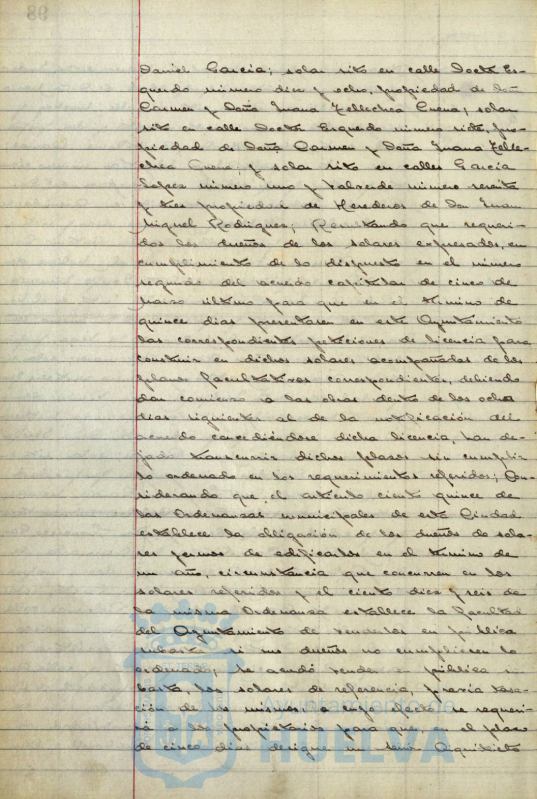 Daniel Garcia; solar sito en calle Doctor Es-
querdo número diez y ocho, propiedad de Dña
Carmen y Doña Juana Zellechea Cuena; solar
sito en calle Doctor Esquerdo número siete, pro-
piedad de Doña Carmen y Doña Juana Zelle-
chea Cuena, y solar sito en calles Garcia
Lopez número uno y Valverde número sesenta
y tres propiedad de Herederos de Don Juan
Miguel Rodriguez; Resultando que requeri-
dos los dueños de los solares expresados, en
cumplimiento de lo dispuesto en el número
segundo del acuerdo capitular de cinco de
Marzo último para que en el término de
quince dias presentasen en este Ayuntamiento
las correspondientes peticiones de licencia para
construir en dichos solares acompañadas de los
planos facultativos correspondientes, debiendo
dar comienzo a las obras dentro de los ocho
dias siguientes al de la notificación del
acuerdo concediéndose dicha licencia, han de-
jado transcurrir dichos plazos sin cumplir
lo ordenado en los requerimientos referidos; Con-
siderando que el articulo ciento quince de
las Ordenanzas municipales de esta Ciudad
establece la obligación de los dueños de sola-
res yermos de edificarlos en el término de
un año, circunstancia que concurren en los
solares referidos y el ciento diez y seis de
la misma Ordenanza establece la facultad
del Ayuntamiento de venderlos en pública
subasta si sus dueños no cumpliesen lo
ordenado; Se acordó vender en pública su-
basta, los solares de referencia, previa tasa-
ción de los mismos, a cuyo efecto se requeri-
rá a los propietarios para que, en el plazo
de cinco dias designe un señor Arquitecto
98
Ayuntamiento de
HUELVA